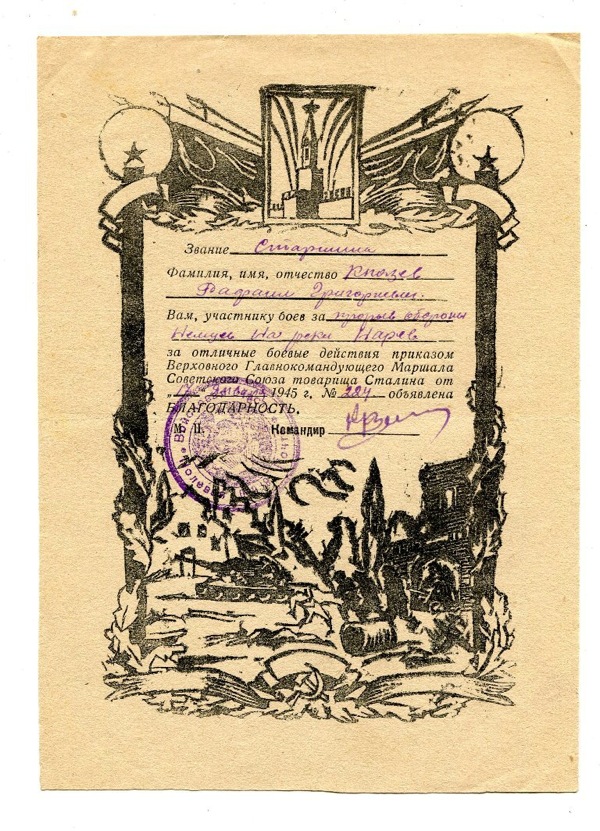 Звание Старшина
Фамилия, имя, отчество Князев
Рафаил Григорьевич.
Вам, участнику боев за прорыв обороны
Немцев На реки Нарев
за отличные боевые действия приказом
Верховного Главнокомандующего Маршала
Советского Союза товарища Сталина от
Января 1945 г, № 224 объявлена
БЛАГОДАРНОСТЬ.
М. П. Командир